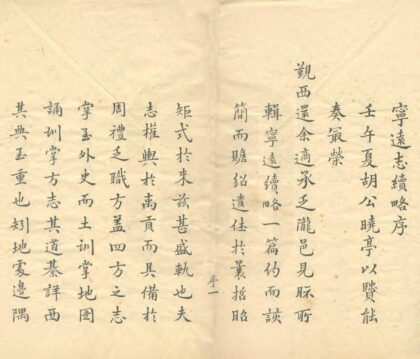 寧遠志續略序
壬午夏胡公曉亭以賢能
奏最榮
覲西還余適承乏隴邑見眎所
輯寧遠續略一篇約而該
簡而贍紹遺徃於曩哲昭
序一
矩式於來兹甚盛軌也夫
志權輿於禹貢而具備於
周禮之職方蓋四方之志
掌至外史而土訓掌地圖
誦訓掌方志其道綦詳西
其典至重也矧地處邊隅